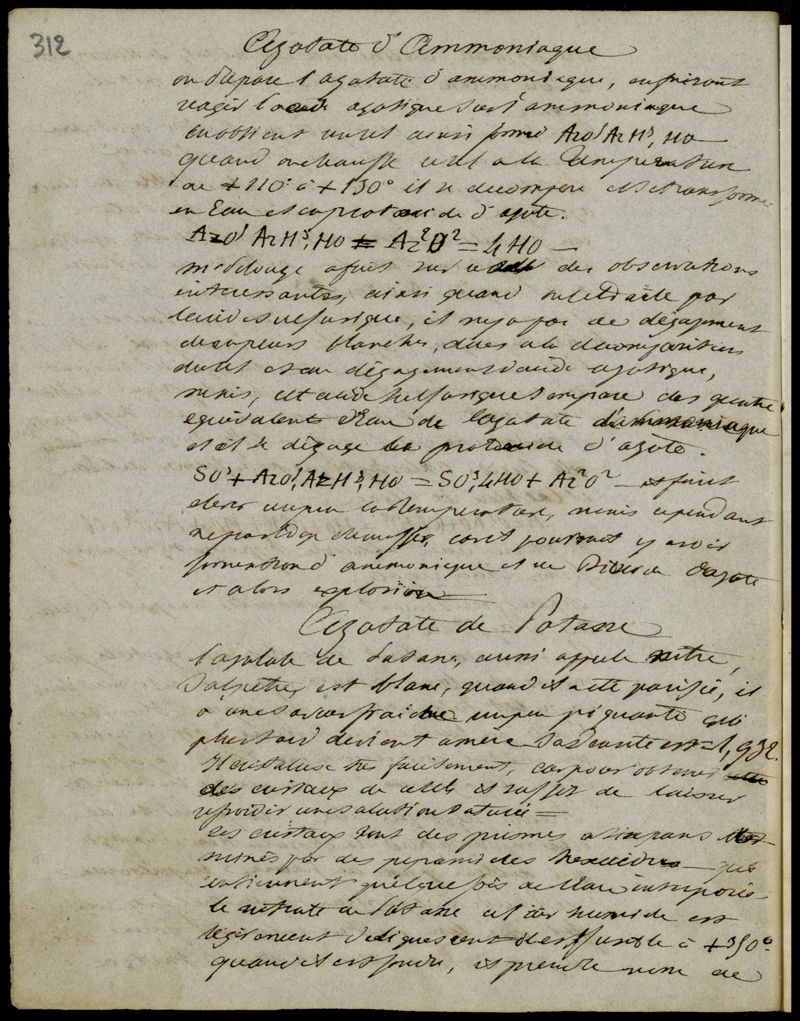 312
Azotate d'Ammoniaque
on prépare l'azotate d'ammoniaque, en faisant
réagir l'acide azotique sur l'ammoniaque
on obtient un sel ainsi formé AzO⁵AzH³, HO
quand on chauffe ce sel à la température
de +110° à +130° il se decompose et se transforme
en Eau et en protoxide d'azote.
AzO⁵AzH³, HO = Az²O² = 4HO —
mr Pelouze a fait sur ce sel des observations
interessantes, ainsi quand on le traite par
l'acide sulfurique, il n'y a pas de dégagement
de vapeurs blanches, dues à la décomposition
du sel et au dégagement d'acide azotique,
mais, cet acide sulfurique s'empare des quatre
équivalents d'Eau de l'azotate d'ammoniaque
et il se dégage le protoxide d'azote.
SO³ + AzO⁵, AzH³, HO = SO³, 4HO + Az²O² — il faut
élever un peu la température, mais cependant
ne pas trop chauffer, car il pourrait y avoir
formation d'ammoniaque et de Bioxide d'azote
et alors explosion
Azotate de Potasse
l'azotate de Potasse, aussi appelé nitre,
Salpêtre, est blanc, quand il a été purifié, il
a une saveur fraiche un peu piquante qui
plus tard devient amère Sa densité est 1,932.
Il cristalise très facilement, car pour obtenir
des cristaux de ce sel il suffit de laisser
refroidir une solution saturée =
ces cristaux sont des prismes à six pans
terminés par des pyramides hexaèdres — qui
contiennent quelque fois de l'Eau interposée
le nitrate de Potasse à l'air humide est
légèrement deliquescent il est fusible à +350°
quand il est fondu, il prend le nom de